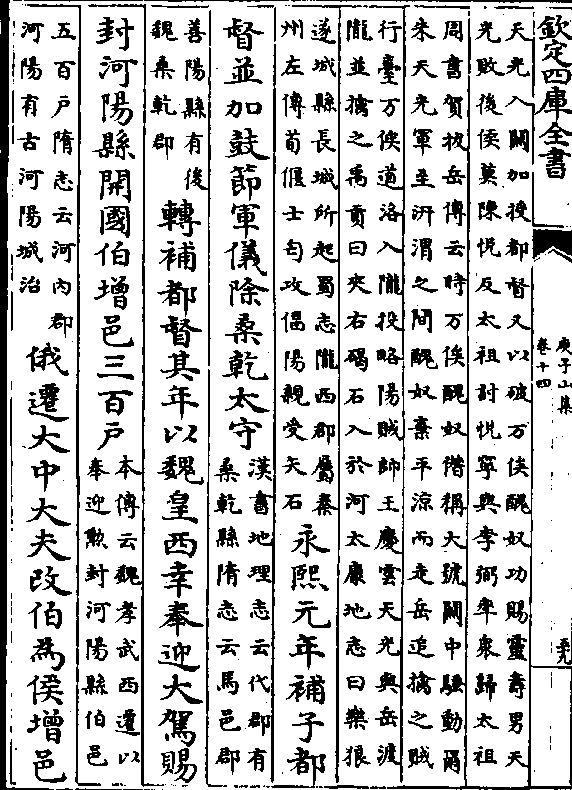 欽定四庫全書
庾子山集
卷十四
天光入關加授都督又以破万俟醜奴功賜靈壽男天
光敗後侯莫陳悅反太祖討悅寧與李弼率眾歸太祖
周書賀拔岳傳云時万俟醜奴僭稱大號關中騷動爾
朱天光軍至汧渭之間醜奴棄平涼而走岳追擒之賊
行臺万俟道洛入隴投略陽賊帥王慶雲天光與岳渡
隴並擒之禹貢曰夾右碣石入於河太康地志曰樂狼
遂城縣長城所起蜀志隴西郡屬秦
州左傳荀偃士匄攻偪陽親受矢石
永熙元年補子都
督並加鼓節軍儀除桑乾太守
漢書地理志云代郡有
桑乾縣隋志云馬邑郡
善陽縣有後
魏桑乾郡
轉補都督其年以魏皇西幸奉迎大駕賜
封河陽縣開國伯增邑三百戶
本傳云魏孝武西遷以
奉迎勲封河陽縣伯邑
五百戶隋志云河內郡
河陽有古河陽城治
俄遷大中大夫改伯為侯增邑